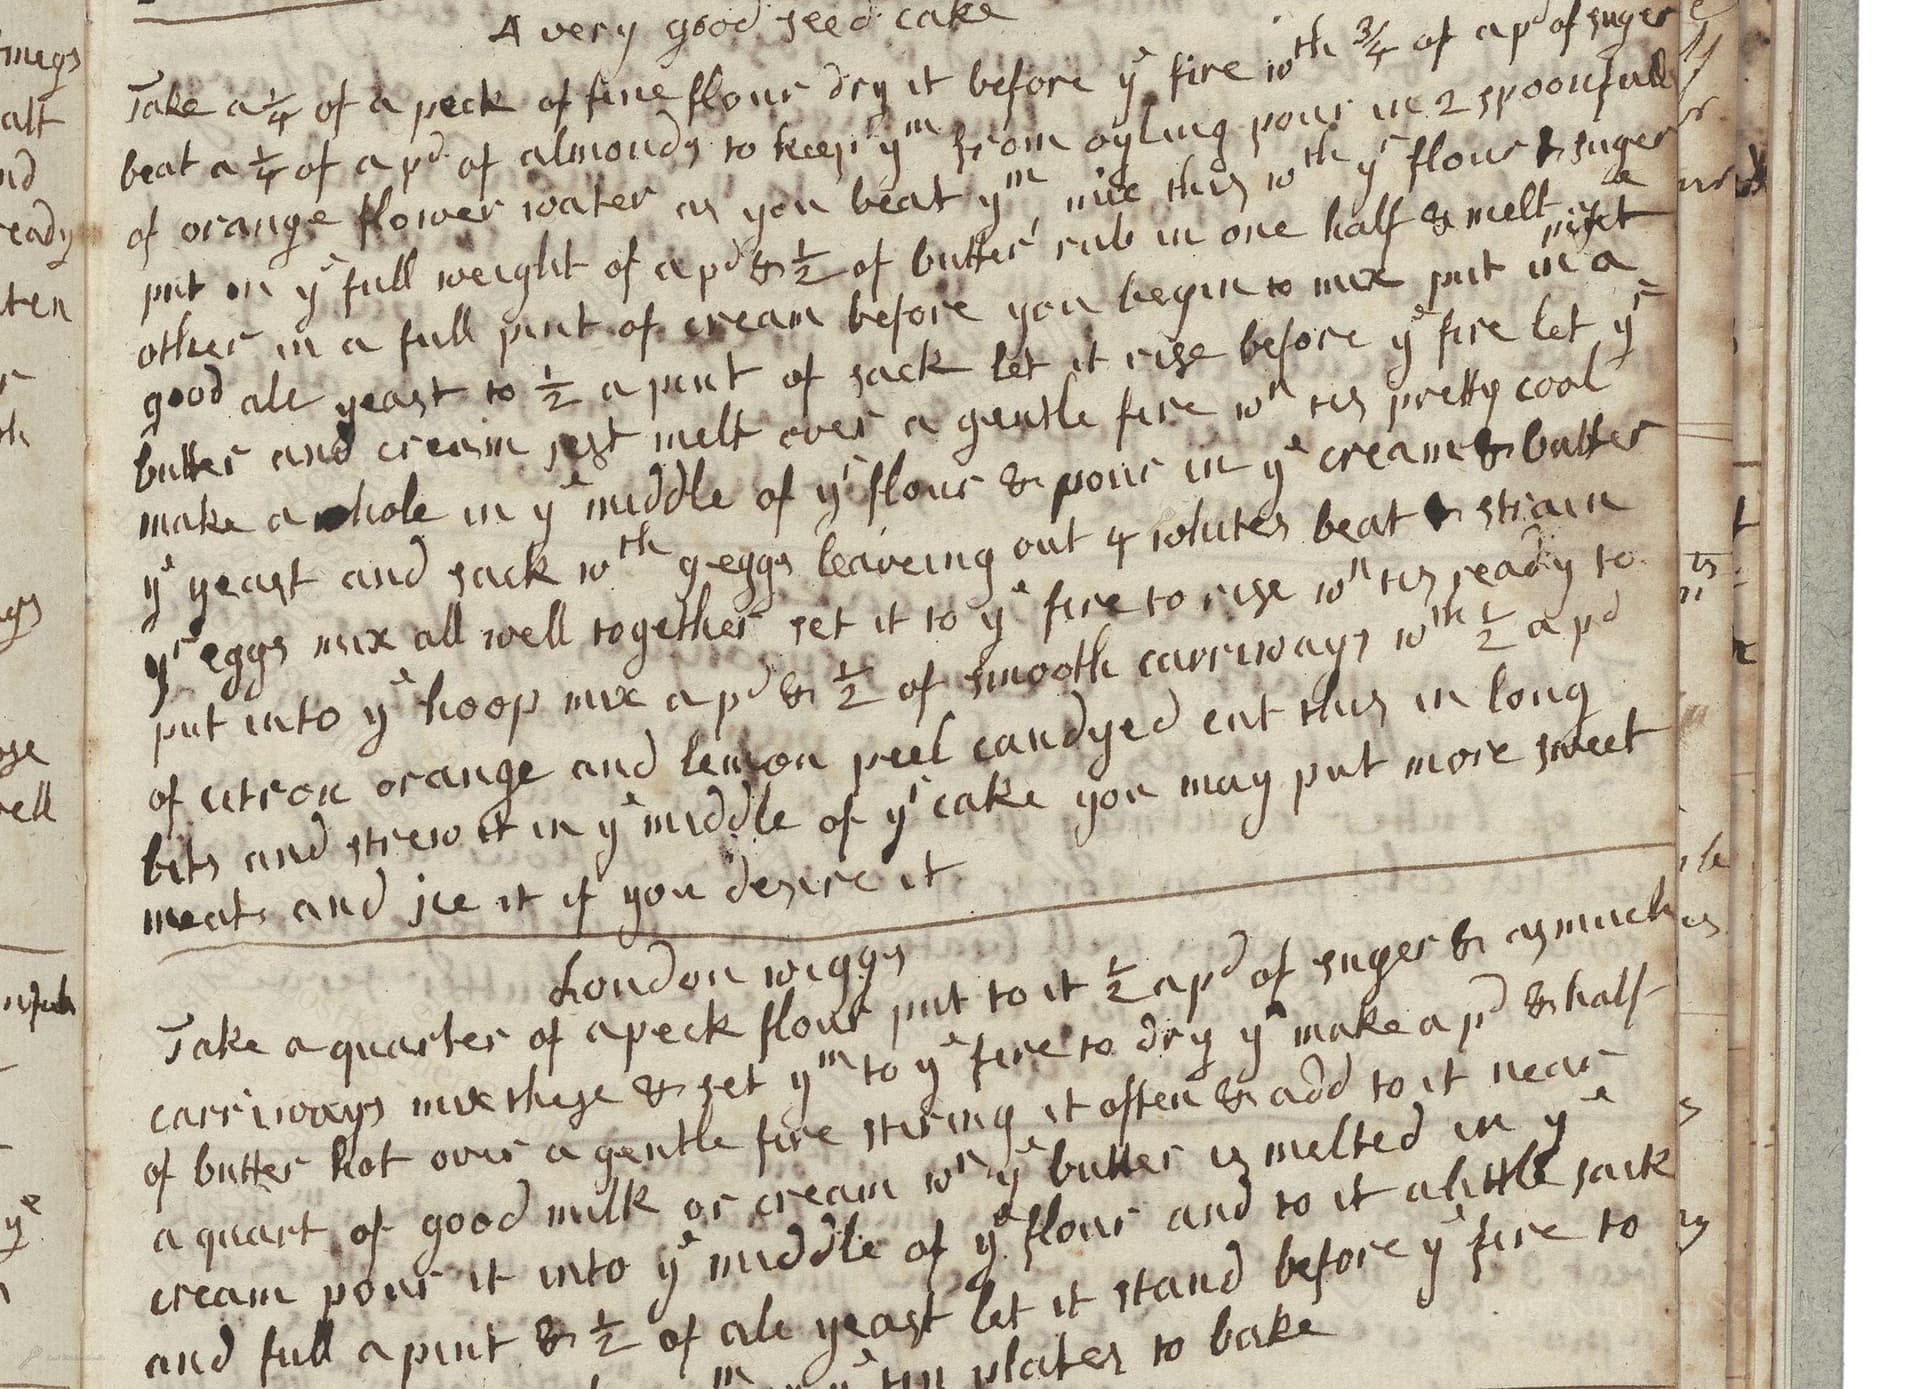 A very good seed cake
Take a 1/4 of a peck of fine flour dry it before ye fire wth 3/4 of a pd of suger
beat a 1/4 of a pd of almonds to keep ym from oyling pour in 2 spoonfulls
of orange flower water as you beat ym, mix this wth yr flour & suger
put in ye full weight of a pd & 1/2 of butter rub in one half & melt ye
other in a full pint of cream before you begin to mix put in a
good ale yeast to 1/2 a pint of sack let it rise before ye fire let yr
butter and cream just melt over a gentle fire wn tis pretty cool
make a hole in ye middle of yr flour & pour in ye cream & butter
ye yeast and sack wth 9 eggs leaveing out 4 whites beat & strain
yr eggs mix all well together set it to ye fire to rise wn tis ready to
put into ye hoop mix a pd & 1/2 of smooth carriways wth 1/2 a pd
of citron orange and lemon peel candyed cut this in long
bits and strew it in ye middle of yr cake you may put more sweet
meats and jce it if you desire it
London wiggs
Take a quarter of a peck flour put to it 1/2 a pd of suger & as much
carriways mix these & set ym to ye fire to dry yn make a pd & half
of butter hot over a gentle fire stiring it often & add to it near
a quart of good milk or cream wn ye butter is melted in ye
cream pour it into ye middle of ye flour and to it a little sack
and full a pint & 1/2 of ale yeast let it stand before ye fire to
ym ye tin plates to bake